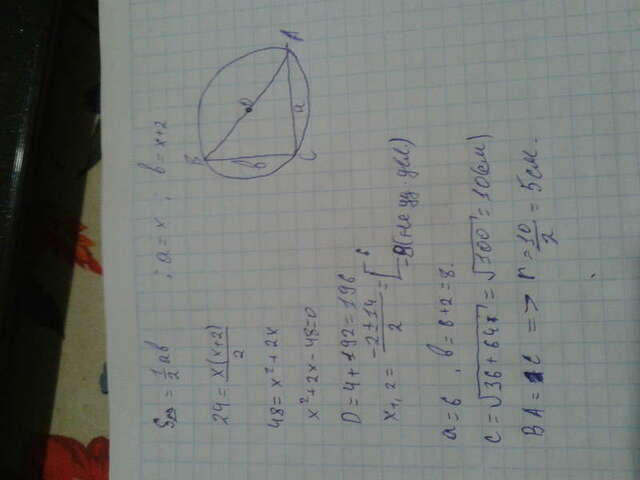 S = 1/2 ab ; a = x ; b = x+2
24 = x(x+2)/2
48 = x² + 2x
x² + 2x - 48 = 0
D = 4 + 192 = 196
x₁,₂ = (-2 ± 14)/2 = [6
-8 (не уд. усл)
a = 6 , b = 6 + 2 = 8.
c = √36 + 64 = √100 = 10 (см)
BA = c => r = 10/2 = 5 см.
B
O
A
a
b
C